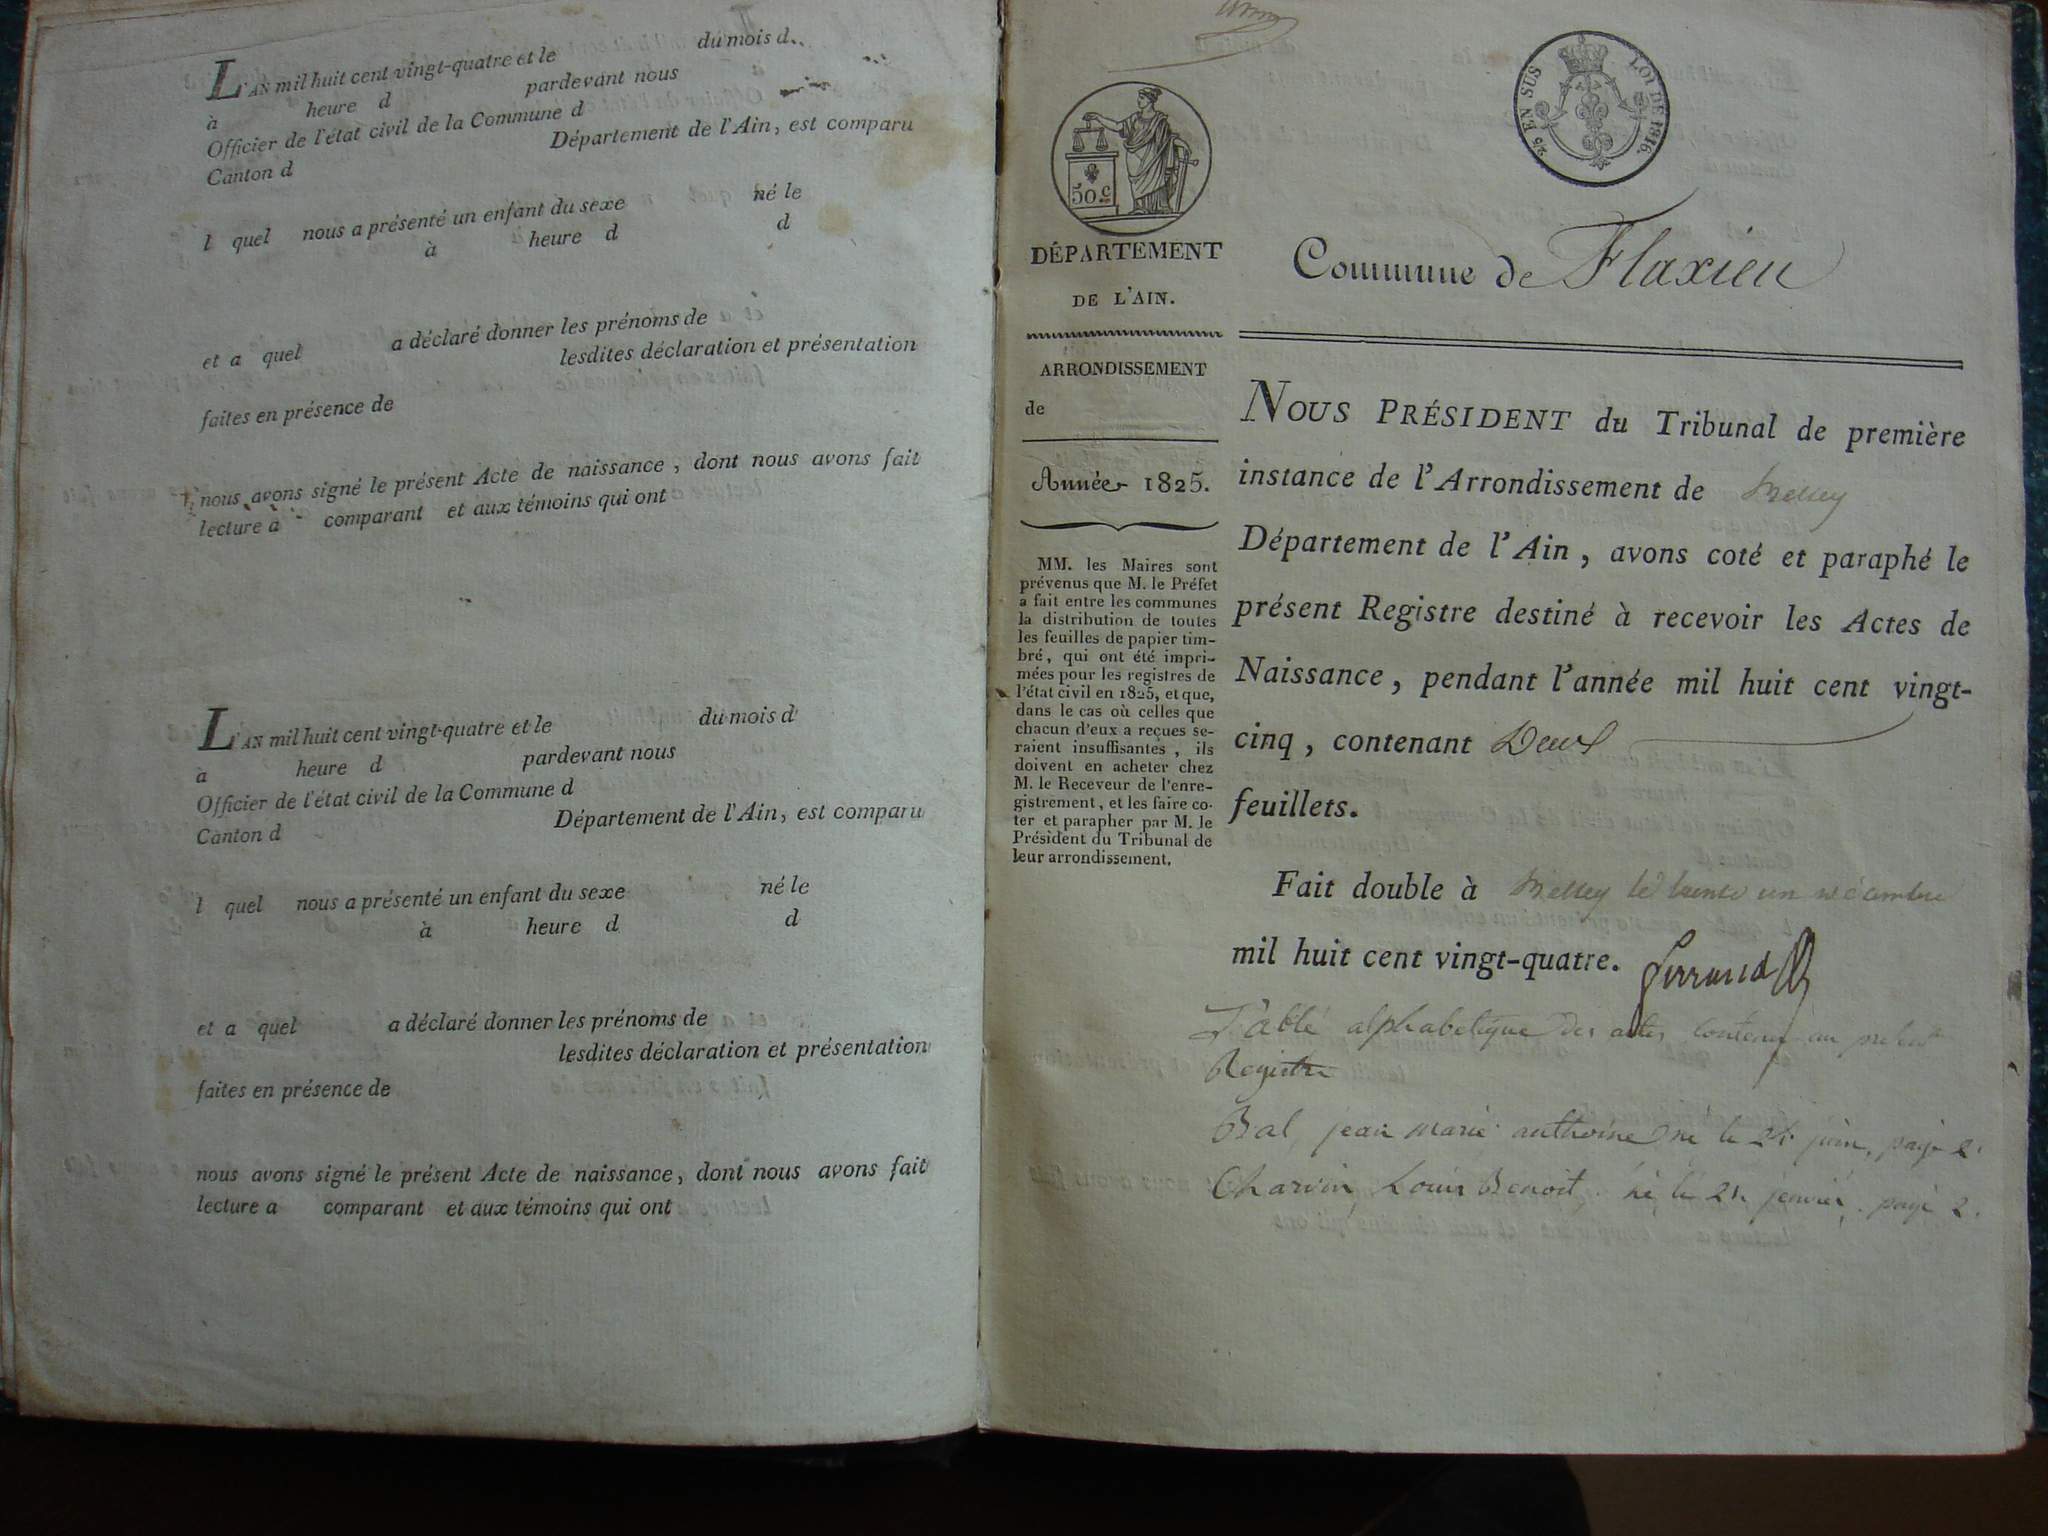 L'AN mil huit cent vingt-quatre et le du mois d
à heure d pardevant nous
Officier de l'état civil de la Commune d
Canton d Département de l'Ain, est comparu
l quel nous a présenté un enfant du sexe né le
à heure d d
et a quel a déclaré donner les prénoms de
lesdites déclaration et présentation
faites en présence de
nous avons signé le présent Acte de naissance, dont nous avons fait
lecture à comparant et aux témoins qui ont
L'AN mil huit cent vingt-quatre et le du mois d
à heure d pardevant nous
Officier de l'état civil de la Commune d
Canton d Département de l'Ain, est comparu
l quel nous a présenté un enfant du sexe né le
à heure d d
et a quel a déclaré donner les prénoms de
lesdites déclaration et présentation
faites en présence de
nous avons signé le présent Acte de naissance, dont nous avons fait
lecture a comparant et aux témoins qui ont
25 EN SUS LOI DE 1816.
50 c
DÉPARTEMENT
DE L'AIN.
ARRONDISSEMENT
de
Année 1825.
MM. les Maires sont
prévenus que M. le Préfet
a fait entre les communes
la distribution de toutes
les feuilles de papier tim-
bré, qui ont été impri-
mées pour les registres de
l'état civil en 1825, et que,
dans le cas où celles que
chacun d'eux a reçues se-
raient insuffisantes, ils
doivent en acheter chez
M. le Receveur de l'enre-
gistrement, et les faire co-
ter et parapher par M. le
Président du Tribunal de
leur arrondissement.
Commune de Flaxieu
NOUS PRÉSIDENT du Tribunal de première
instance de l'Arrondissement de Belley
Département de l'Ain, avons coté et paraphé le
présent Registre destiné à recevoir les Actes de
Naissance, pendant l'année mil huit cent vingt-
cinq, contenant Deux
feuillets.
Fait double à Belley le trente un décembre
mil huit cent vingt-quatre. Ferrand
Table alphabétique des actes contenus au présent
Registre
Bal, jean marie anthoine né le 24 juin, page 2.
Charvin, Louis Benoit, né le 21 janvier, page 2.